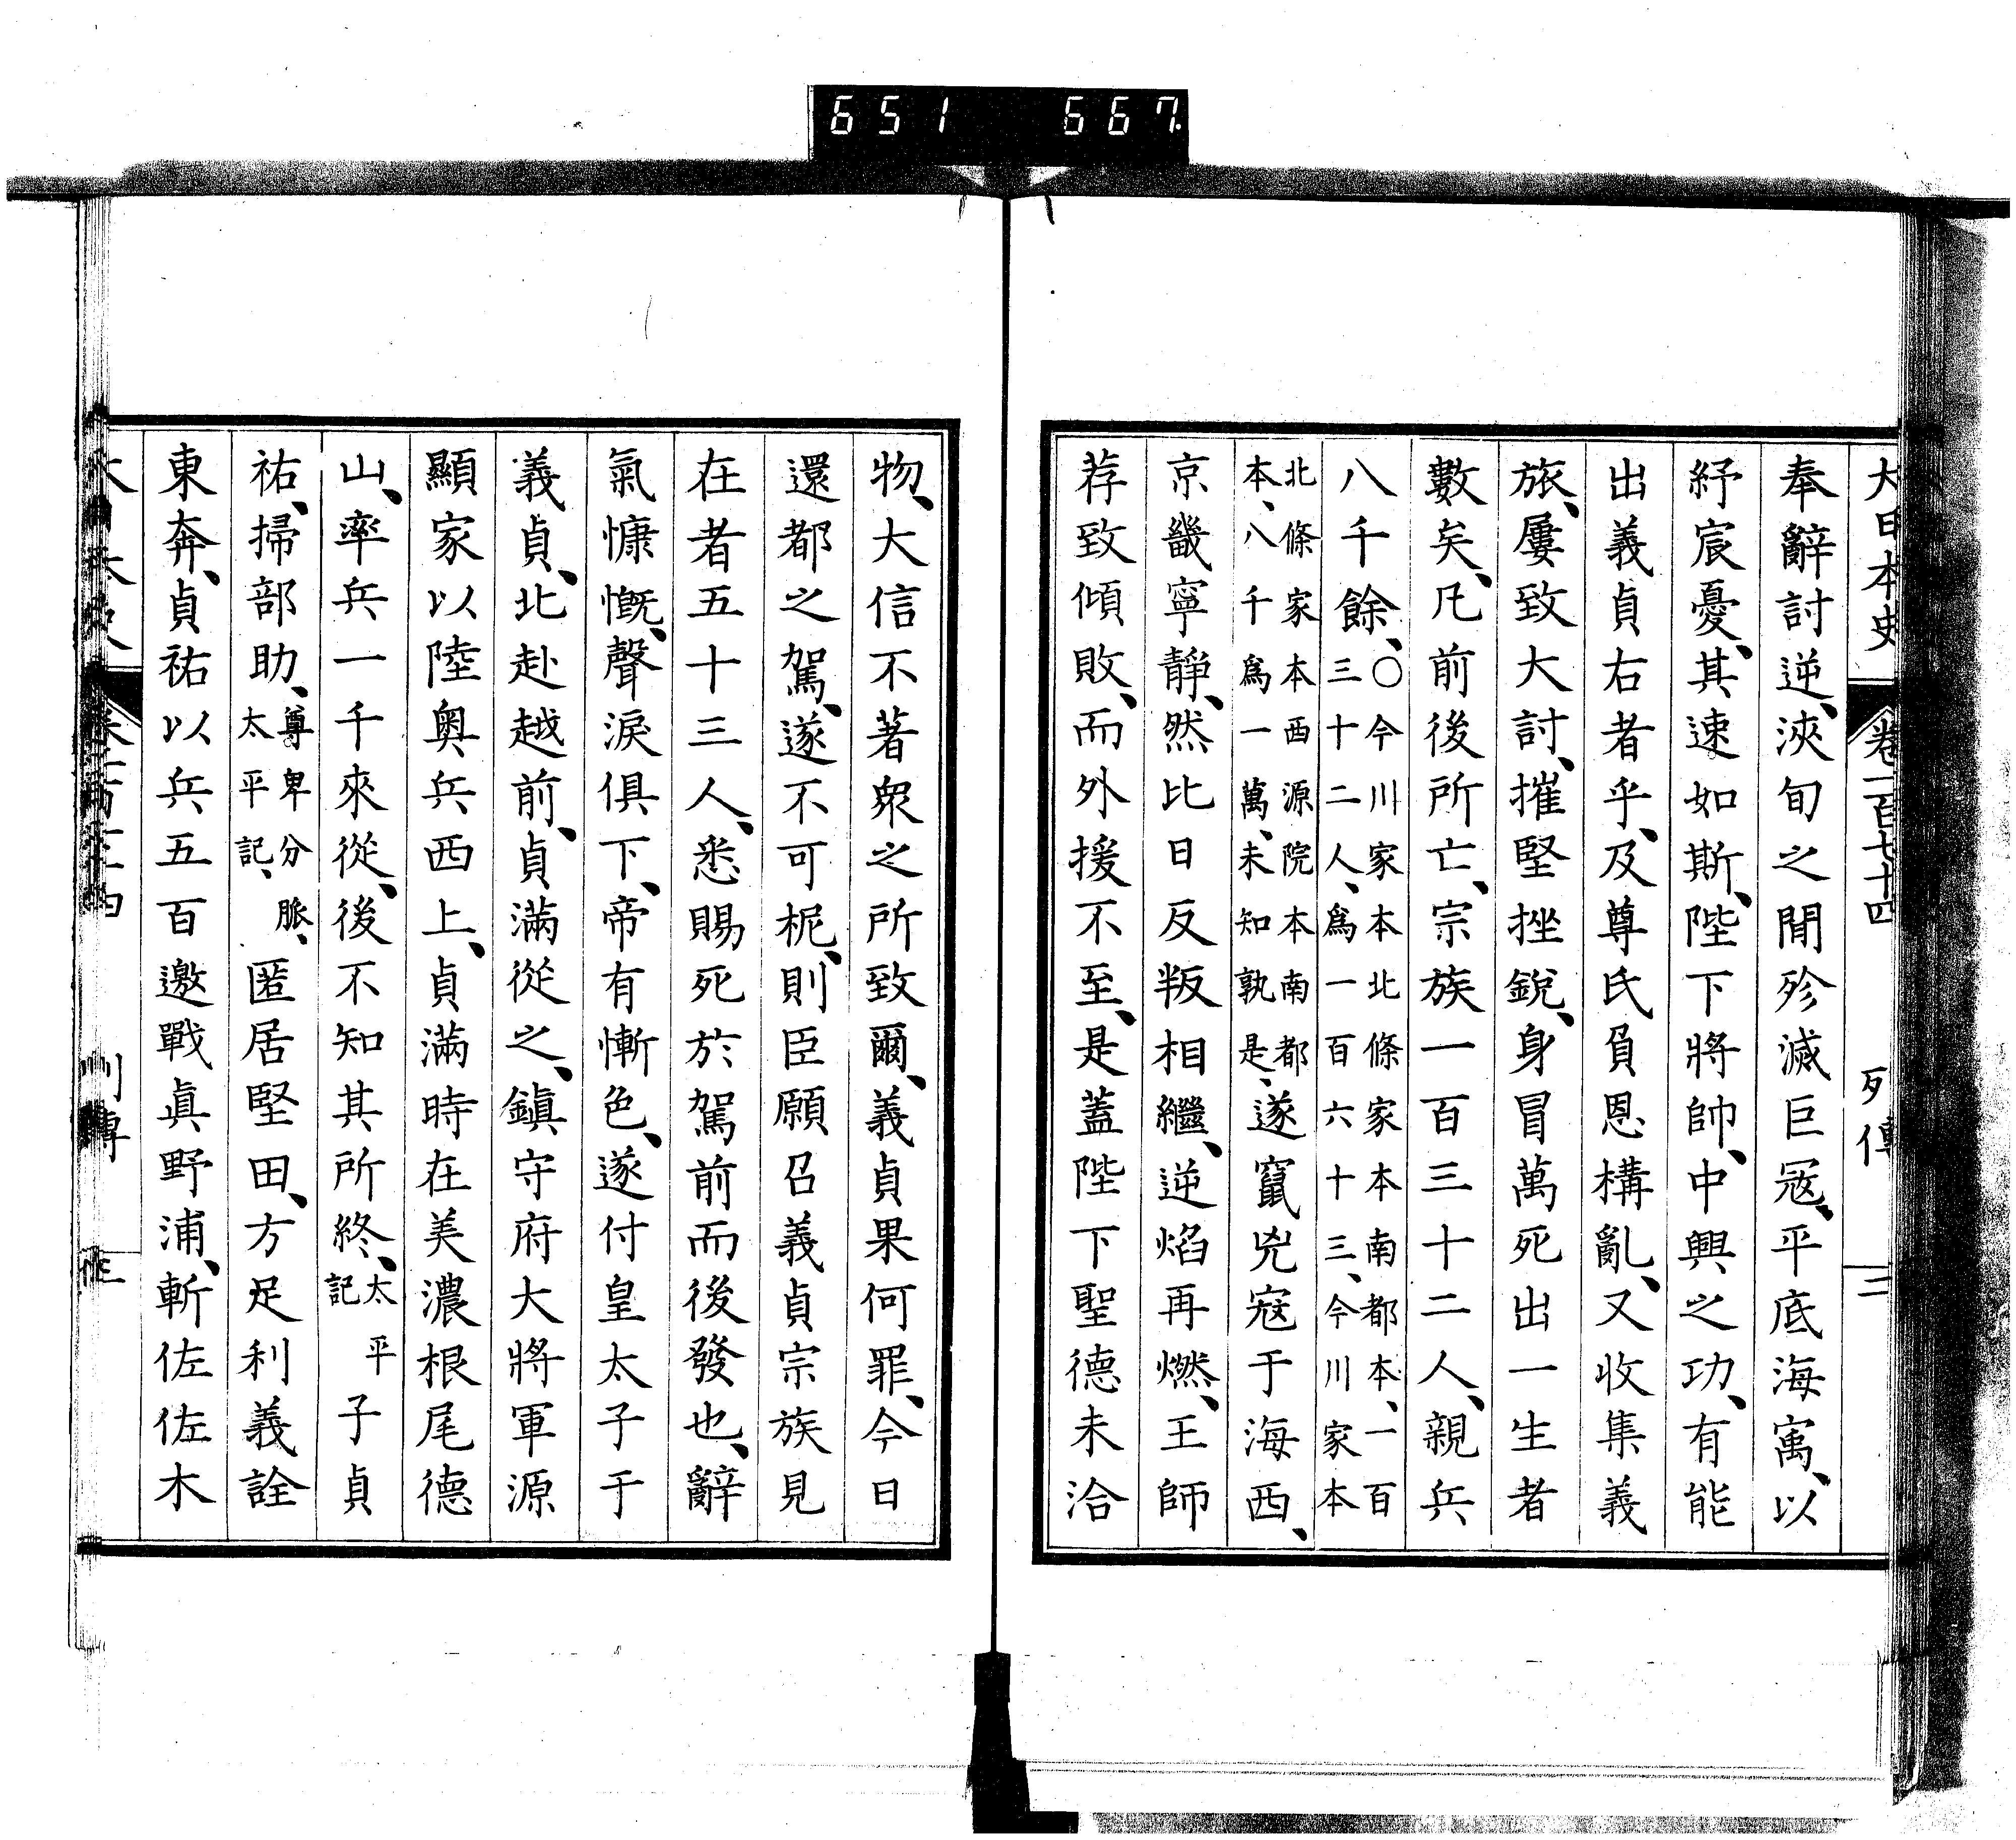 651 667
大日本史 卷一百七十四 列傳 三
奉辭討逆、浹旬之閒殄滅巨寇、平底海寓、以
紓宸憂、其速如斯、陛下將帥、中興之功、有能
出義貞右者乎、及尊氏負恩構亂、又收集義
旅、屢致大討、摧堅挫銳、身冒萬死出一生者
數矣、凡前後所亡、宗族一百三十二人、親兵
八千餘、〇今川家本北條家本南都本、一百三十二人、爲一百六十三、今川家本
北條家本西源院本南都本、八千爲一萬、未知孰是、遂竄兇寇于海西、
京畿寧靜、然比日反叛相繼、逆焰再燃、王師
荐致傾敗、而外援不至、是蓋陛下聖德未洽
物、大信不著衆之所致爾、義貞果何罪、今日
還都之駕、遂不可柅、則臣願召義貞宗族見
在者五十三人、悉賜死於駕前而後發也、辭
氣慷慨、聲淚俱下、帝有慚色、遂付皇太子于
義貞、北赴越前、貞滿從之、鎭守府大將軍源
顯家以陸奧兵西上、貞滿時在美濃根尾德
山、率兵一千來從、後不知其所終、太平記 子貞
祐、掃部助、尊卑分脈、太平記、匿居堅田、方足利義詮
東奔、貞祐以兵五百邀戰眞野浦、斬佐佐木